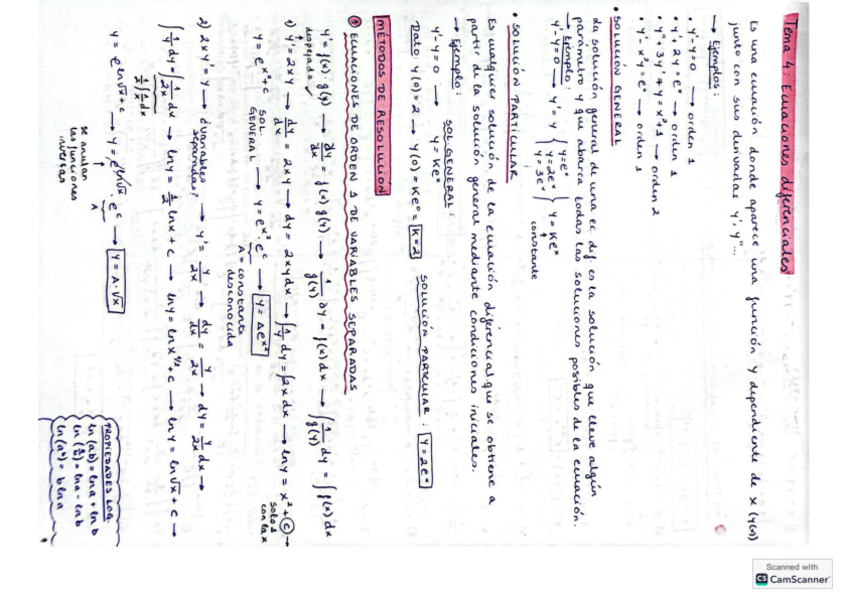 Tema 4: Ecuaciones diferenciales
Es una ecuación donde aparece una función y dependiente de x (y(x))
junto con sus derivadas y', y''...
→ Ejemplos:
• y'-y=0 → orden 1
• y'+2y=eˣ → orden 1
• y''+3y'+y=x²+1 → orden 2
• y'-x²y=eˣ → orden 1
• SOLUCIÓN GENERAL
da solución general de una ec. dif. es la solución que lleve algún
parámetro y que abarca todas las soluciones posibles de la ecuación.
→ Ejemplo:
y'-y=0 → y'=y { y=eˣ y=2eˣ y=3eˣ } y=Keˣ
constante
• SOLUCIÓN PARTICULAR
Es cualquier solución de la ecuación diferencial que se obtiene a
partir de la solución general mediante condiciones iniciales.
→ Ejemplo: SOL GENERAL:
y'-y=0 → y=Keˣ
Dato: y(0)=2 → y(0)=Ke⁰= K=2 SOLUCIÓN PARTICULAR: y=2eˣ
MÉTODOS DE RESOLUCIÓN
① ECUACIONES DE ORDEN 1 DE VARIABLES SEPARADAS
y'=f(x)·g(y) → dy/dx=f(x)g(y) → 1/g(y) dy=f(x)dx → ∫1/g(y) dy=∫f(x)dx
despejada ✓
1) y'=2xy → dy/dx=2xy → dy=2xydx → ∫1/y dy=∫2xdx → lny=x²+c →
solo 1
con la x
y=e^(x²+c) SOL. GENERAL → y=e^(x²)·e^c → y=Ae^(x²)
A=constante
desconocida
2) 2xy'=y → ¿variables separadas? → y'=y/2x → dy/dx=y/2x → dy=y/2x dx →
∫1/y dy=∫1/2x dx → lny=1/2 lnx+c → lny=lnx^(1/2)+c → lny=ln√x+c →
1/2∫1/x dx
y=e^(ln√x+c) → y=e^(ln√x)·e^c → y=A·√x
A
se anulan
las funciones
inversas
PROPIEDADES LOG.
ln(ab)=lna+lnb
ln(a/b)=lna-lnb
ln(aᵇ)=blna
Scanned with
CS CamScanner